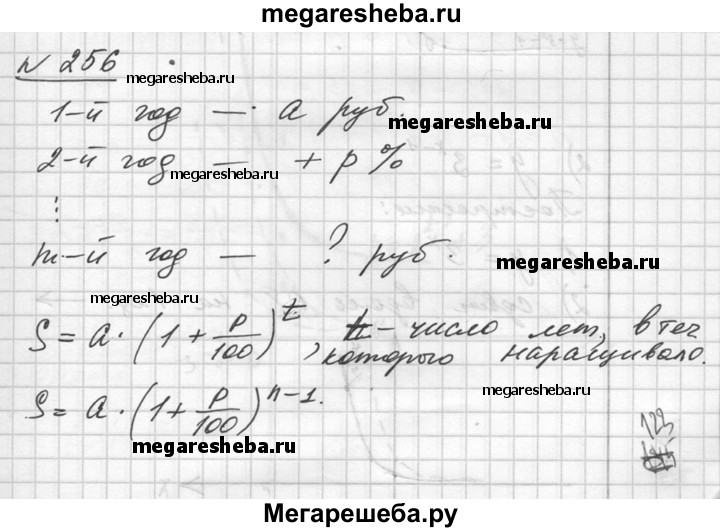 megaresheba.ru
№ 256
megaresheba.ru
1-й год — а руб.
megaresheba.ru
2-й год — + р %
megaresheba.ru
⋮
m-й год — ? руб.
megaresheba.ru
megaresheba.ru
S = a · (1 + p/100)^t, t - число лет, в теч.
которого наращивало.
S = a · (1 + p/100)^n-1.
megaresheba.ru
megaresheba.ru
123
Мегарешеба.ру